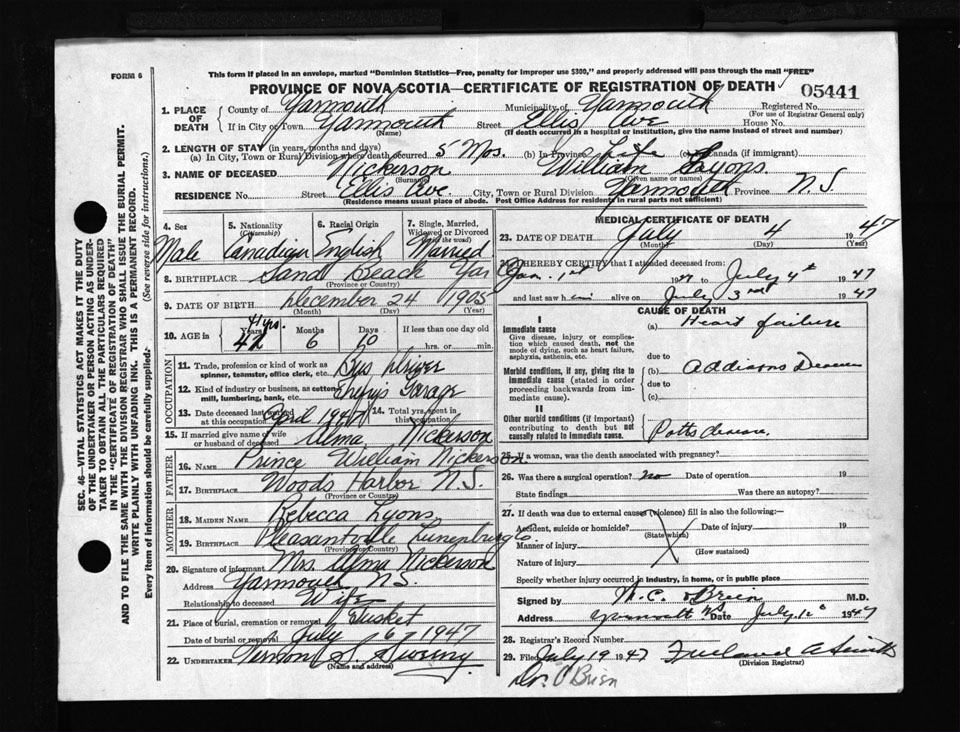 FORM 6
This form if placed in an envelope, marked "Dominion Statistics—Free, penalty for improper use $300," and properly addressed will pass through the mail "FREE"
PROVINCE OF NOVA SCOTIA—CERTIFICATE OF REGISTRATION OF DEATH
05441
SEC. 46—VITAL STATISTICS ACT MAKES IT THE DUTY
OF THE UNDERTAKER OR PERSON ACTING AS UNDER-
TAKER TO OBTAIN ALL THE PARTICULARS REQUIRED
IN THE "CERTIFICATE OF REGISTRATION OF DEATH"
AND TO FILE THE SAME WITH THE DIVISION REGISTRAR WHO SHALL ISSUE THE BURIAL PERMIT.
WRITE PLAINLY WITH UNFADING INK. THIS IS A PERMANENT RECORD.
Every item of information should be carefully supplied. (See reverse side for instructions.)
1. PLACE OF DEATH
County of Yarmouth Municipality of Yarmouth Registered No.
(For use of Registrar General only)
If in City or Town Yarmouth Street Ellis Ave House No.
(Name) (If death occurred in a hospital or institution, give the name instead of street and number)
2. LENGTH OF STAY (in years, months and days)
(a) In City, Town or Rural Division where death occurred 5 Mos. (b) In Province Life (c) In Canada (if immigrant)
3. NAME OF DECEASED Nickerson William Lyons
(Surname) (Given name or names)
RESIDENCE No. Street Ellis Ave. City, Town or Rural Division Yarmouth Province N.S
(Residence means usual place of abode. Post Office Address for residents in rural parts not sufficient)
4. Sex 5. Nationality (Citizenship) 6. Racial Origin 7. Single, Married, Widowed or Divorced (Write the word)
Male Canadian English Married
8. BIRTHPLACE Sand Beach Yar Co
(Province or Country)
9. DATE OF BIRTH December 24 1905
(Month) (Day) (Year)
10. AGE in Years Months Days If less than one day
41 yrs. 42 6 10 hrs. or min.
OCCUPATION
11. Trade, profession or kind of work as spinner, teamster, office clerk, etc. Bus Driver
12. Kind of industry or business, as cotton mill, lumbering, bank, etc. Garage
13. Date deceased last worked at this occupation April 1947 14. Total yrs. spent in this occupation
15. If married give name of wife or husband of deceased Alma Nickerson
FATHER
16. NAME Prince William Nickerson
17. BIRTHPLACE Woods Harbor N.S.
(Province or Country)
MOTHER
18. MAIDEN NAME Rebecca Lyons
19. BIRTHPLACE Pleasantville Lunenburg Co
(Province or Country)
20. Signature of informant Mrs. Alma Nickerson
Address Yarmouth N.S.
Relationship to deceased Wife
21. Place of burial, cremation or removal Tusket
Date of burial or removal July 6 1947
22. UNDERTAKER Vernon S. Sweeny
(Name and address)
MEDICAL CERTIFICATE OF DEATH
23. DATE OF DEATH July 4 1947
(Month) (Day) (Year)
24. I HEREBY CERTIFY that I attended deceased from
Jan. 1st 1947 to July 4th 1947
and last saw him alive on July 3rd 1947
CAUSE OF DEATH
I
Immediate cause (a) Heart failure
Give disease, injury or complication which caused death, not the mode of dying, such as heart failure, asphyxia, asthenia, etc.
due to Addisons Disease
Morbid conditions, if any, giving rise to immediate cause (stated in order proceeding backwards from immediate cause).
(b)
due to
(c)
II
Other morbid conditions (if important) contributing to death but not causally related to immediate cause.
Potts disease.
25. If a woman, was the death associated with pregnancy?
26. Was there a surgical operation? no Date of operation 19
State findings Was there an autopsy?
27. If death was due to external causes (violence) fill in also the following:—
Accident, suicide or homicide? Date of injury 19
(State which)
Manner of injury
(How sustained)
Nature of injury
Specify whether injury occurred in industry, in home, or in public place
Signed by O'Brien M.D.
Address Yarmouth NS Date July 1947
28. Registrar's Record Number
29. Filed July 19 1947
(Division Registrar)
Dr. O'Brien